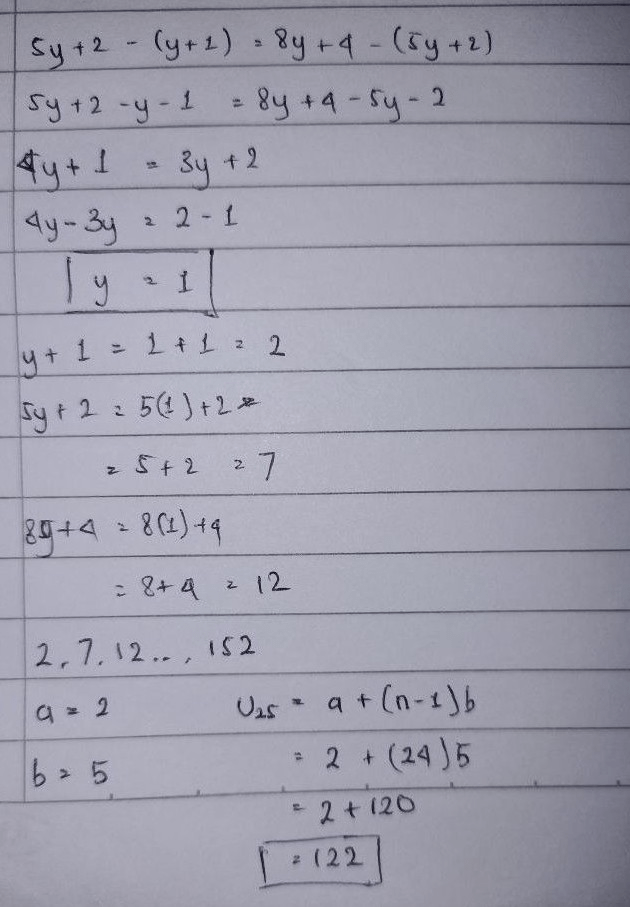 5y + 2 - (y+1) = 8y + 4 - (5y + 2)
5y + 2 - y - 1 = 8y + 4 - 5y - 2
4y + 1 = 3y + 2
4y - 3y = 2 - 1
y = 1
y + 1 = 1 + 1 = 2
5y + 2 = 5(1) + 2
= 5 + 2 = 7
8y + 4 = 8(1) + 4
= 8 + 4 = 12
2, 7, 12 .., 152
a = 2 U25 = a + (n-1)b
b = 5 = 2 + (24)5
= 2 + 120
= 122